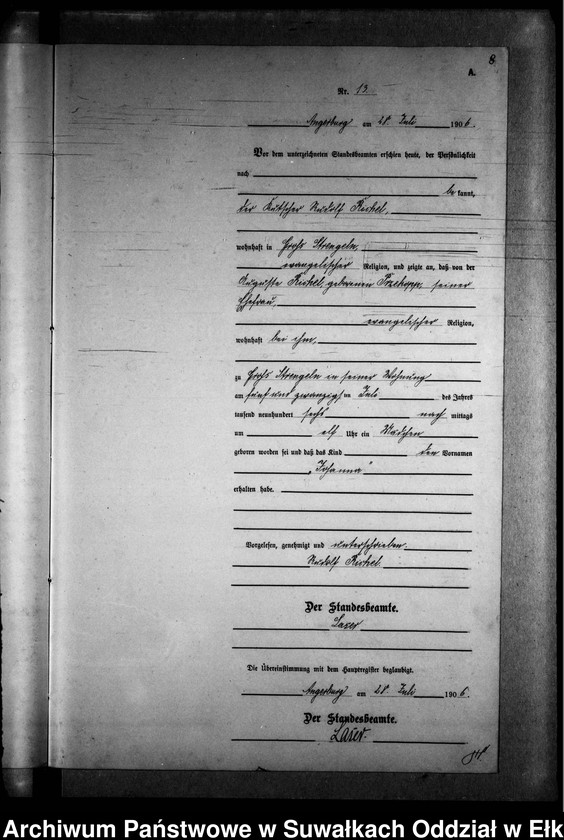 8
A.
Nr. 13.
Angerburg am 28. Juli 1906.
Vor dem unterzeichneten Standesbeamten erschien heute, der Persönlichkeit
nach
be kannt,
der Kutscher Rudolf
wohnhaft in Groß Strengeln,
evangelischer Religion, und zeigte an, daß von der
Auguste geborenen seiner
Ehefrau,
evangelischer Religion,
wohnhaft bei ihm,
zu Groß Strengeln in seiner Wohnung
am fünf und zwanzigsten Juli des Jahres
tausend neunhundert sechs nach mittags
um elf Uhr ein Mädchen
geboren worden sei und daß das Kind den Vornamen
„Johanna"
erhalten habe.
Vorgelesen, genehmigt und unterschrieben.
Rudolf
Der Standesbeamte.
Die Übereinstimmung mit dem Hauptregister beglaubigt.
Angerburg am 28. Juli 1906.
Der Standesbeamte.
Archiwum Państwowe w Suwałkach Oddział w Ełk